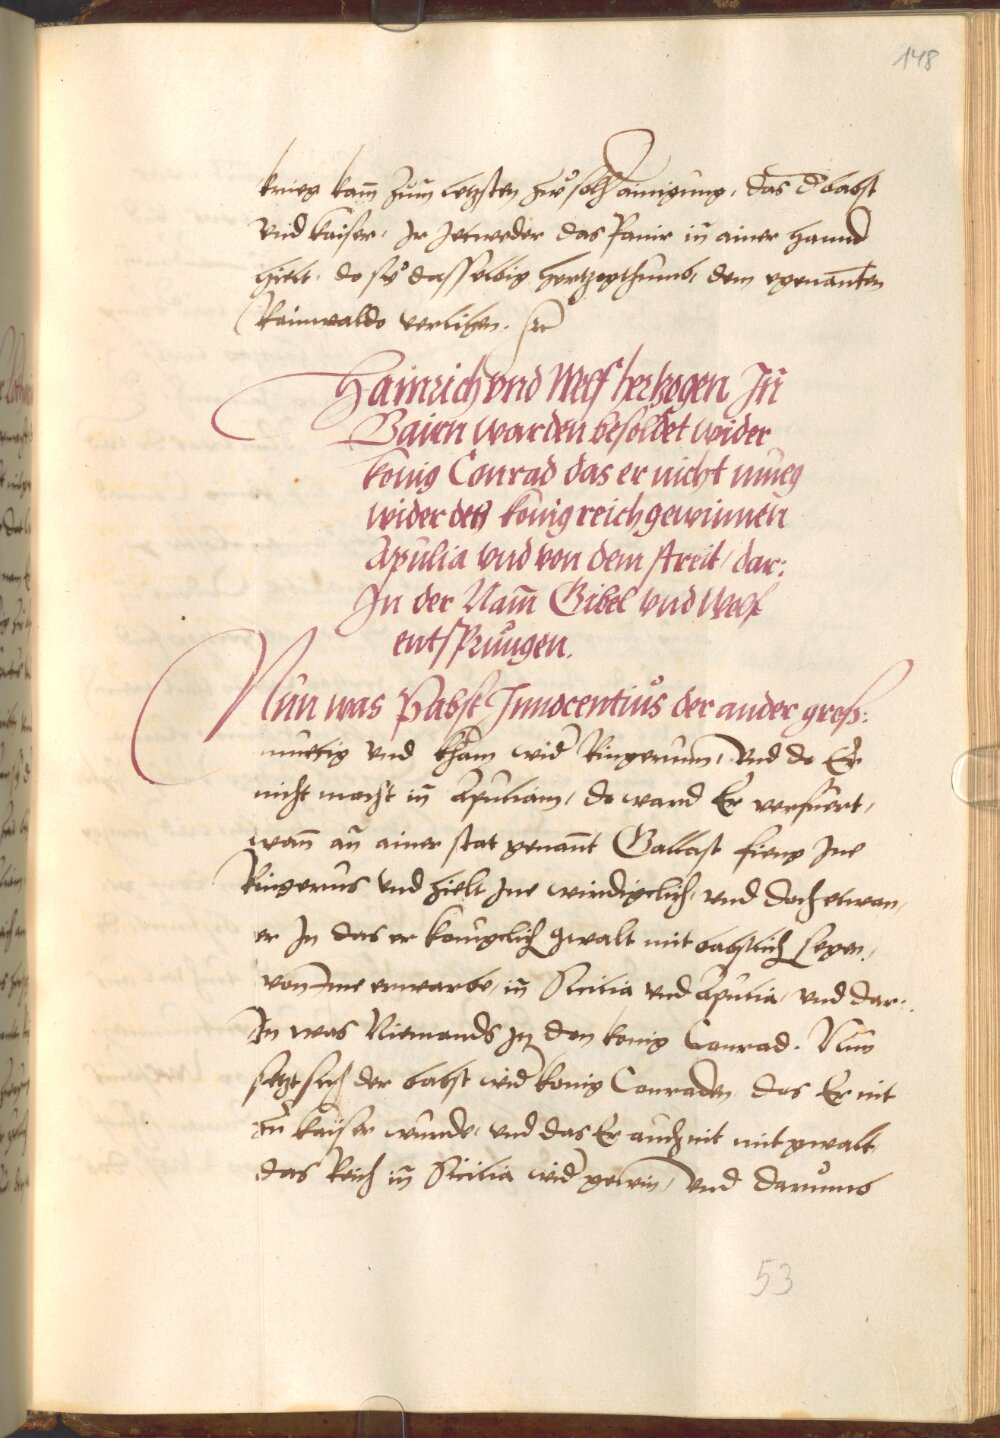 148
krieg kam̄ zum̄ letzsten zw solh ainigung, das d' babst
vnd kaiser, Ir Jetweder das Panir in̄ ainer hannd
hielt, do sy dasselbig hertzogthumb, dem egenanten
Rainwaldo verlihen. etc
Hainrich vnd Welf hertzogen In̄
Bairn warden besöldet wider
könig Conrad das er nicht mueg
wider den künigreich gewinnen
Apulia vnd von dem streit / dar:
In der Nam̄ Gibel vnd Welf
entsprungen.
Nun was Pabst Innocentius der ander groß:
muettig vnd kham wid' Ringerum, vnd do Er
nicht mocht in̄ Apuliam, do ward Er verfuert,
wan̄ an̄ ainer stat genan̄t Gallast fieng Ine
Ringerus vnd hielt Ine wirdigclich, vnd doch etwan,
er In das er konigclich gwalt mit babstlich segen,
von Ime erwarbe, in̄ Sicilia vnd Apulia, vnd dar:
In was Niemands In den konig Conrad. Nun
setzt sich der babst wid' konig Conraden das Er nit
zu kayser wurde, vnd das Er auch nit mit gwalt
das Reich in̄ Sicilia wid' gewin, vnd darumb
53